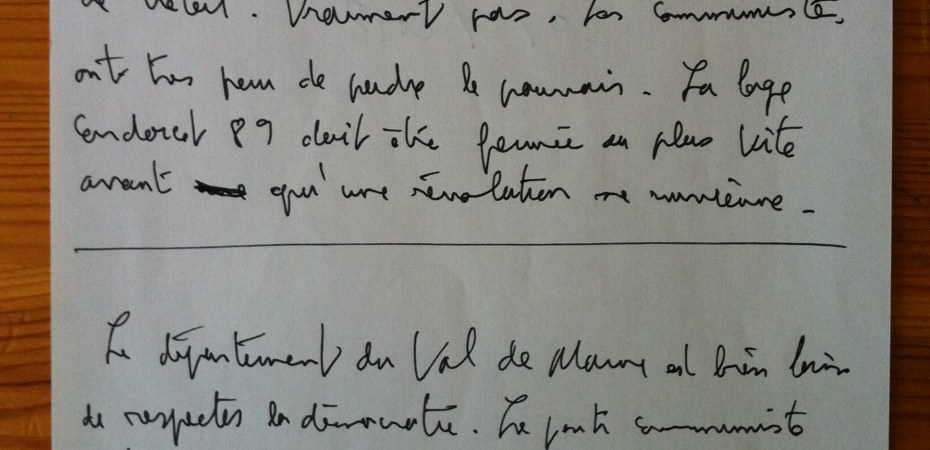 Vraiment pas, les communistes,
ont très peur de perdre le pouvoir. La loge
Condorcet 89 doit être fermée au plus vite
avant qu'une révolution ne survienne.
Le département du Val de Marne est bien loin
de respecter la démocratie. Le parti communiste